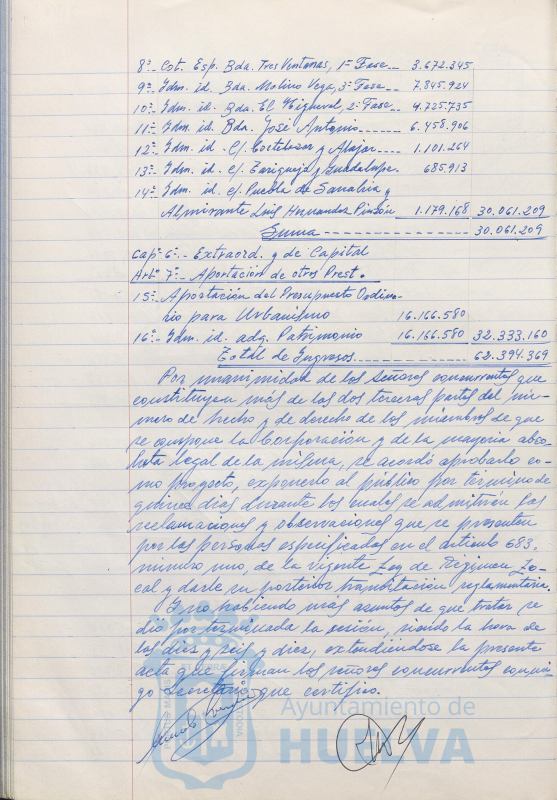 8º- Cot. Esp. Bda. Tres Ventanas, 1ª Fase -- 3.672.345
9º- Idm. id. Bda. Molino Vega, 3ª Fase -- 7.845.924
10º- Idm. id. Bda. El Higueral, 2ª Fase -- 4.725.735
11º- Idm. id. Bda. José Antonio ----- 6.458.906
12º- Idm. id. C/. Cortelazor y Alajar --- 1.101.264
13º- Idm. id. c/. Zariqueja y Guadalupe. 685.913
14º- Idm. id. c/. Puebla de Sanabria y
Almirante Luis Hernandez Pinzón 1.179.168 30.061.209
Suma ------------ 30.061.209
Capº 6º.- Extraord. y de Capital
Artº 7º.- Aportación de otros Prest.
15º- Aportación del Presupuesto Ordina-
rio para Urbanismo 16.166.580
16º- Idm. id. adq. Patrimonio 16.166.580 32.333.160
Total de Ingresos. ------------ 62.394.369
Por unanimidad de los Señores concurrentes que
constituyen más de las dos terceras partes del nú-
mero de hecho y de derecho de los miembros de que
se compone la Corporación y de la mayoria abso-
luta legal de la misma, se acordó aprobarlo co-
mo Proyecto, exponerlo al público por término de
quince dias durante los cuales se admitirán las
reclamaciones y observaciones que se presenten
por las personas especificadas en el articulo 683,
número uno, de la vigente Ley de Régimen Lo-
cal y darle su posterior tramitación reglamentaria.
Y no habiendo más asuntos de que tratar se
dió por terminada la sesión, siendo la hora de
las diez y seis y diez, extendiendose la presente
acta que firman los señores concurrentes conmi-
go Secretario que certifico.
Ayuntamiento de
HUELVA